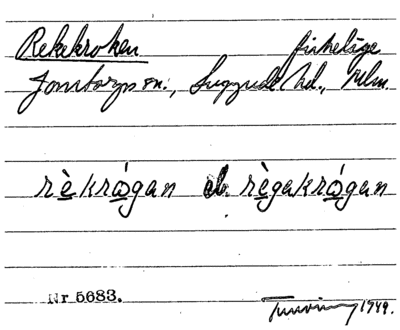 Rekekroken fiskeläge
Jonstorps sn., Luggude hd., Mlm.
rè̲krǻ̲gan el. rè̲gakrǻ̲gan
Nr 5683.
1949.